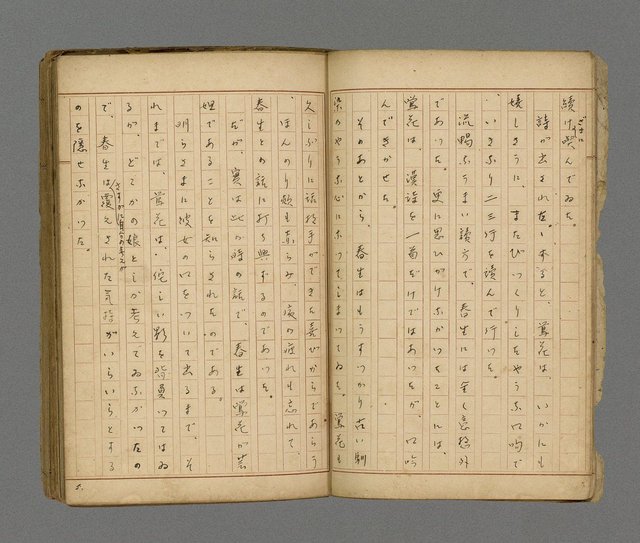 続け囁んでゐた。
詩が出されると、鶯花は、いかにも
嬉しさうに、またびつくりしたやうな口吻で
、いきなり二三行を読んで行つた。
流暢なうまい読方で、春生には全く意想外
であつた。更に思ひがけなかつたことには、
鶯花は、漢詩を一首だけではあつたが、口吟
んできかせた。
そのあとから、春生はもうすつかり古い馴
染のやうな心になつてしまつてゐた。鶯花も
久しぶりに話相手ができた喜びからであらう
、ほんのり頬も赤らみ、夜の疲れも忘れて、
春生との話に打ち興ずるのであつた。
だが、実は此の時の話で、春生は鶯花が芸
妲であることを知らされたのである。
明らさまに彼女の口をついて出るまで、そ
れまでは、鶯花は、侘しい影を背負つてはゐ
るが、どこかの娘としか考えてゐなかつたの
で、春生は、さすがに自分の考えが覆へされた気持がいらいらとする
のを隠せなかつた。